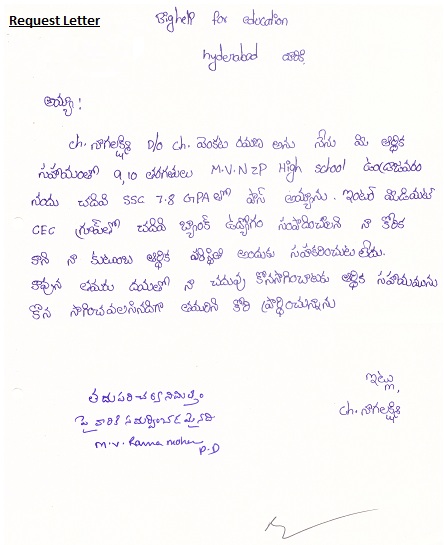 Request Letter
Bighelp for education
hyderabad వారికి
అయ్యా!
ch. నాగలక్ష్మి D/o ch. వెంకట రమణ అను నేను మీ ఆర్థిక
సహాయంతో 9,10 తరగతులు M.V.N ZP High school ఉండ్రాజవరం
నందు చదివి SSC 7.8 GPA లో పాస్ అయ్యాను. ఇంటర్ మీడియట్
CEC గ్రూప్‌లో చదివి బ్యాంక్ ఉద్యోగం సంపాదించాలని నా కోరిక
కాని నా కుటుంబ ఆర్థిక పరిస్థితి అందుకు సహకరించుట లేదు.
కావున తమరు దయతో నా చదువు కొనసాగించుటకు ఆర్థిక సహాయమును
కొన సాగించవలసినదిగా తమరిని కోరి ప్రార్థించుచున్నాను
ఇట్లు,
ch. నాగలక్ష్మి
తదుపరి చర్య నిమిత్తం
పై వారికి సమర్పించడమైనది
M.V. Rama mohan
P.D